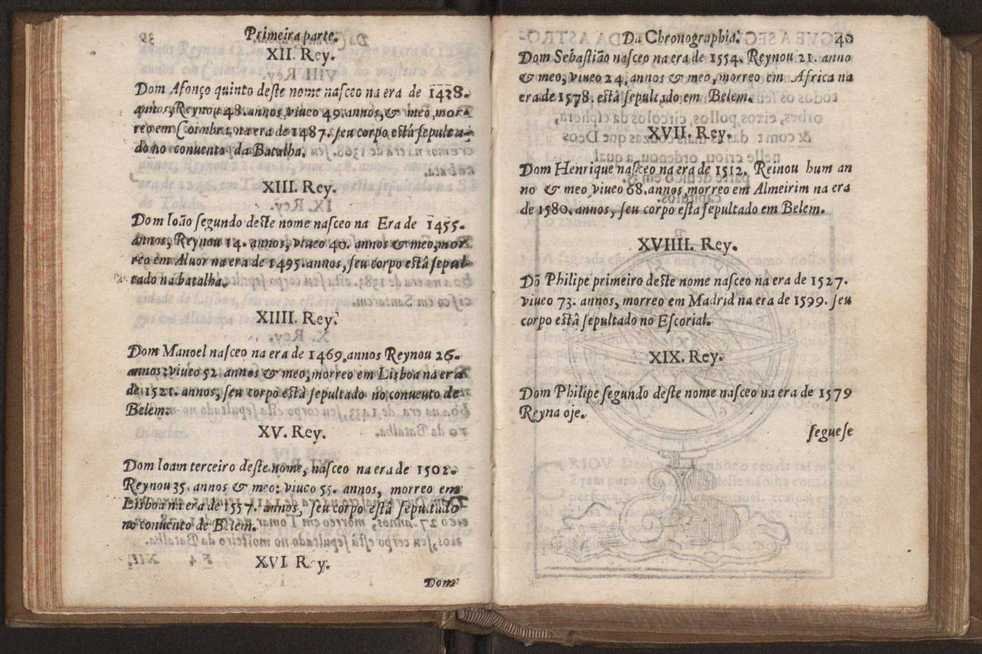 Primeira parte.
XII. Rey.
Dom Afonço quinto deste nome nasceo na era de 1438.
annos, Reynou 48. annos, viueo 49. annos, & meo, mor-
reo em Coimbra, na era de 1487. seu corpo está sepulta-
do no conuento da Batalha.
XIII. Rey.
Dom Ioão segundo deste nome nasceo na Era de 1455.
annos, Reynou 14. annos, viueo 40. annos & meo, mor
reo em Aluor na era de 1495. annos, seu corpo está sepul-
tado na batalha.
XIIII. Rey.
Dom Manoel nasceo na era de 1469. annos Reynou 26.
annos: viueo 52. annos & meo, morreo em Lisboa na era
de 1521. annos, seu corpo está sepultado no conuento de
Belem.
XV. Rey.
Dom Ioam terceiro deste nome, nasceo na era de 1502.
Reynou 35. annos & meo: viueo 55. annos, morreo em
Lisboa na era de 1557. annos, seu corpo está sepultado
no conuento de Belem.
XVI R y.
Dom
Da Chronographia. 40
Dom Sebastião nasceo na era de 1554. Reynou 21. anno
& meo, viueo 24, annos & meo, morreo em Africa na
era de 1578. está sepultado em Belem.
XVII. Rey.
Dom Henrique nasceo na era de 1512. Reinou hum an
no & meo viueo 68. annos, morreo em Almeirim na era
de 1580. annos, seu corpo esta sepultado em Belem.
XVIIII. Rey.
Dõ Philipe primeiro deste nome nasceo na era de 1527.
viueo 73. annos, morreo em Madrid na era de 1599. seu
corpo está sepultado no Escorial.
XIX. Rey.
Dom Philipe segundo deste nome nasceo na era de 1579
Reyna oje.
seguese